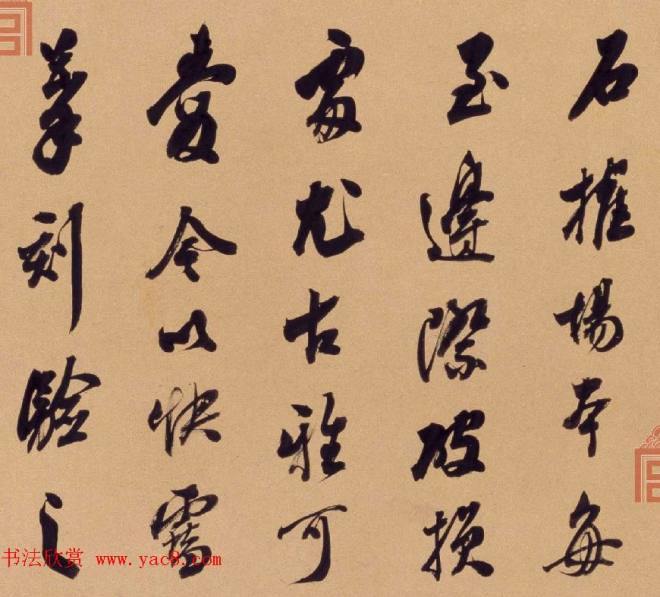 石搉場本每
至邊際破損
處尤古雅可
愛今以快雪
摹刻驗之
书法欣赏 www.yac8.com